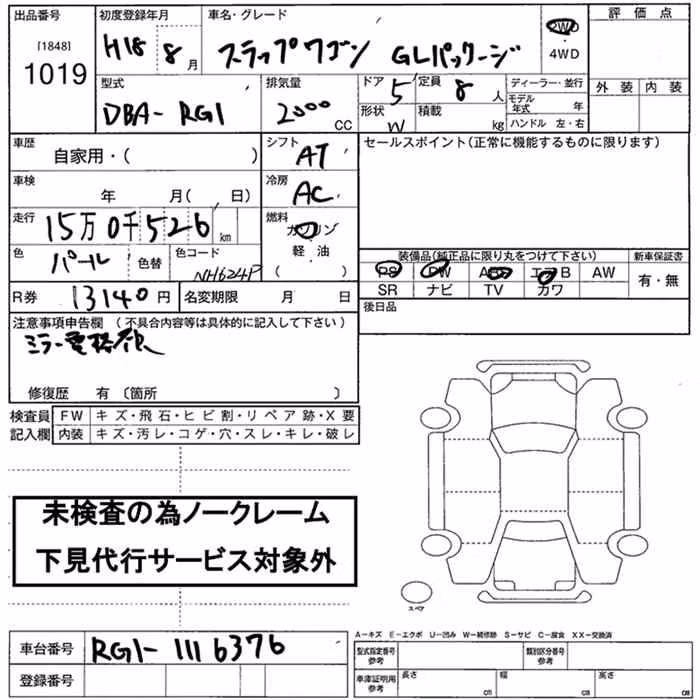 出品番号 初度登録年月 車名・グレード 評価点
[1848]
1019
H18 8 月 スラップワゴン GLパッケージ 2WD・4WD
型式 排気量 ドア 定員 ディーラー・並行 外装 内装
DBA-RG1 2000 CC 5 8 人 モデル年式 年
形状 W 積載 kg ハンドル 左・右
車歴 シフト セールスポイント(正常に機能するものに限ります)
自家用・( ) AT
車検 冷房
年 月( 日) AC
走行 燃料
15万0千526 km ガソリン
軽・油
( )
色 パール 色替 色コード NH624P
装備品(純正品に限り丸をつけて下さい) 新車保証書
PS PW ABS エアB AW 有・無
SR ナビ TV カワ
R券 13140円 名変期限 月 日 後日品
注意事項申告欄 (不具合内容等は具体的に記入して下さい)
ミラー電格不良
修復歴 有 〔箇所 〕
検査員 FW キズ・飛石・ヒビ割・リペア跡・X要
記入欄 内装 キズ・汚レ・コゲ・穴・スレ・キレ・破レ
未検査の為ノークレーム
下見代行サービス対象外
スペア
A-キズ E-エクボ U-凹み W-補修跡 S-サビ C-腐食 XX-交換済
車台番号 RG1-1116376
型式指定番号 参考 類別区分番号 参考
登録番号
車庫証明用 参考 長さ cm 幅 cm 高さ cm